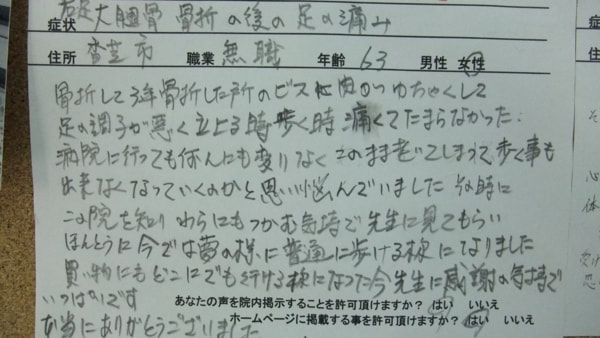 症状 右足大腿骨 骨折の後の足の痛み
住所 香芝市 職業 無職 年齢 63 男性 女性
骨折して3年骨折した所のビスに肉がゆちゃくして
足の調子が悪く立上る時歩く時痛くてたまらなかった.
病院に行っても何んにも変りなくこのまま老てしまって歩く事も
出来なくなっていくのかと思い悩んでいました そな時に
この院を知り わらにもつかむ気持で先生に見てもらい
ほんとうに今では夢の様に普通に歩ける様になりました
買い物にもどこにでも行ける様になった今先生に感謝の気持で
いっぱいです
あなたの声を院内掲示することを許可頂けますか? はい いいえ
本当にありがとうございました
ホームページに掲載する事を許可頂けますか? はい いいえ